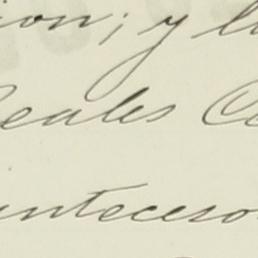 ion; y l
eales C
nteceso